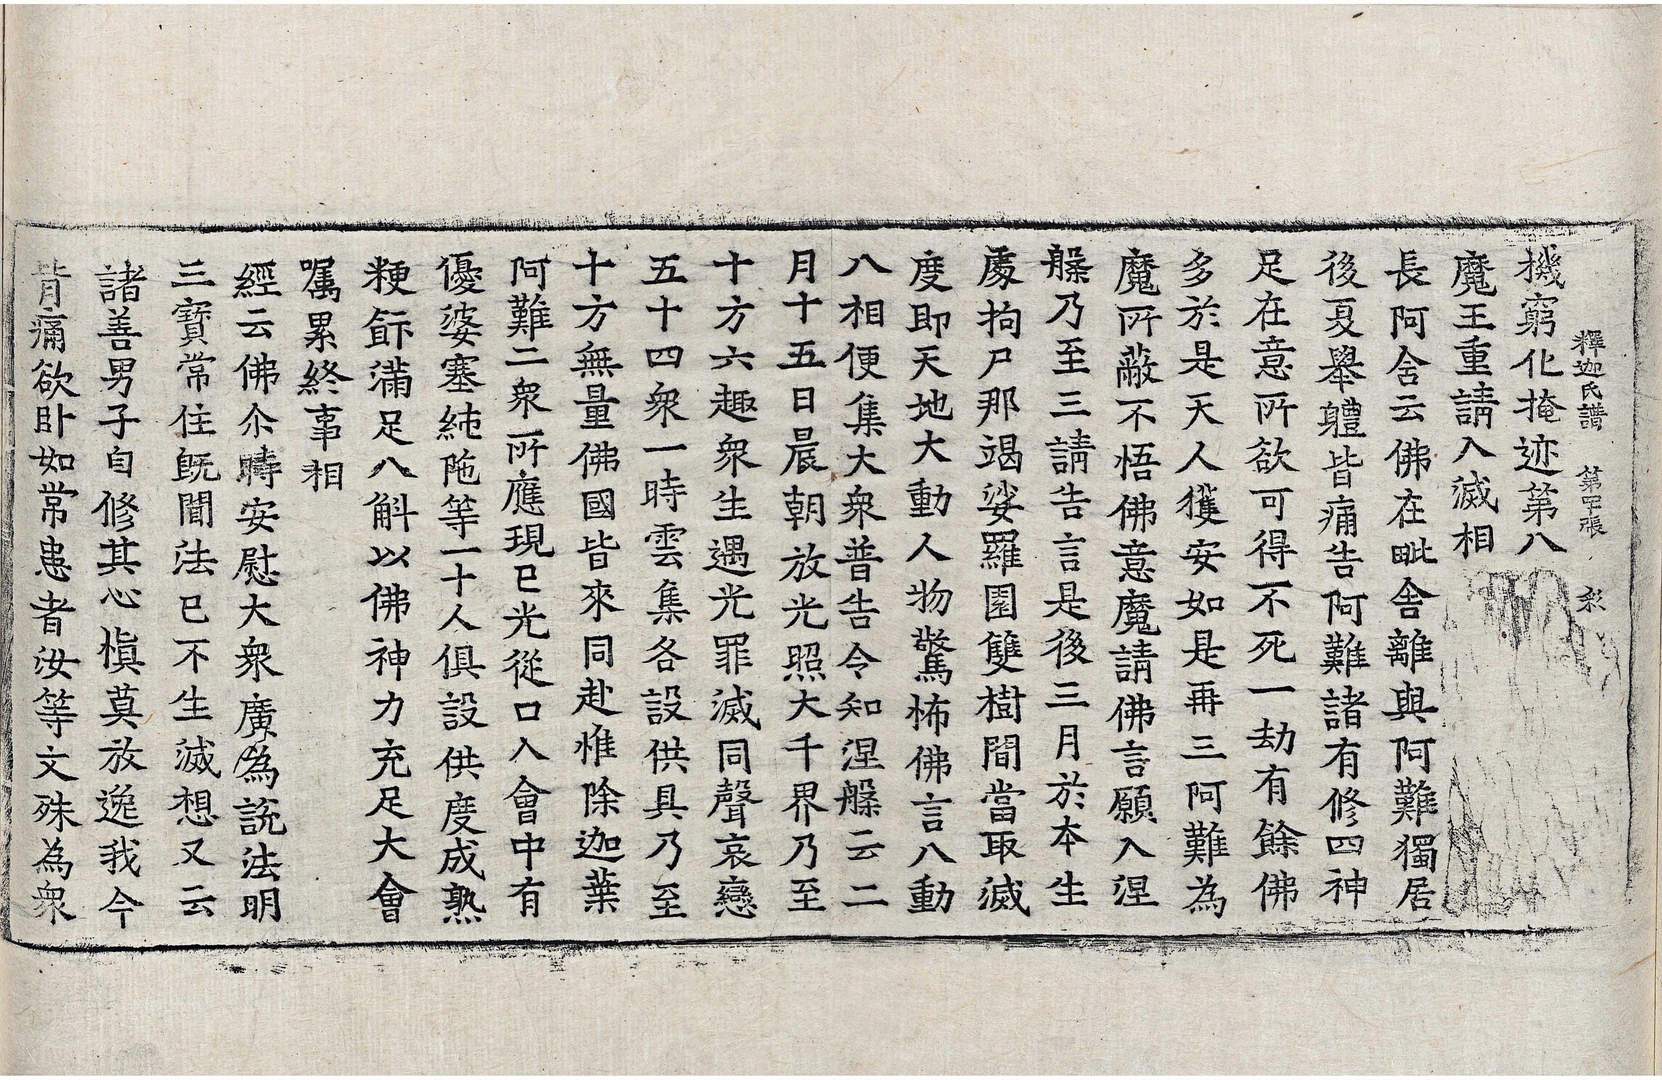 釋迦氏譜 第四十張 彩
機窮化掩迹第八
魔王重請入滅相
長阿含云佛在毗舍離與阿難獨居
後夏舉軆皆痛告阿難諸有修四神
足在意所欲可得不死一劫有餘佛
多於是天人獲安如是再三阿難為
魔所蔽不悟佛意魔請佛言願入涅
槃乃至三請告言是後三月於本生
處拘尸那竭娑羅園雙樹間當取滅
度即天地大動人物驚怖佛言八動
八相便集大衆普告令知涅槃云二
月十五日晨朝放光照大千界乃至
十方六趣衆生遇光罪滅同聲哀戀
五十四衆一時雲集各設供具乃至
十方無量佛國皆來同赴惟除迦葉
阿難二衆所應現已光從口入會中有
優婆塞純陁等一十人俱設供度成熟
粳餅滿足八斛以佛神力充足大會
囑累終事相
經云佛尒時安慰大衆廣為說法明
三寶常住旣聞法已不生滅想又云
諸善男子自修其心慎莫放逸我今
背痛欲卧如常患者汝等文殊為衆